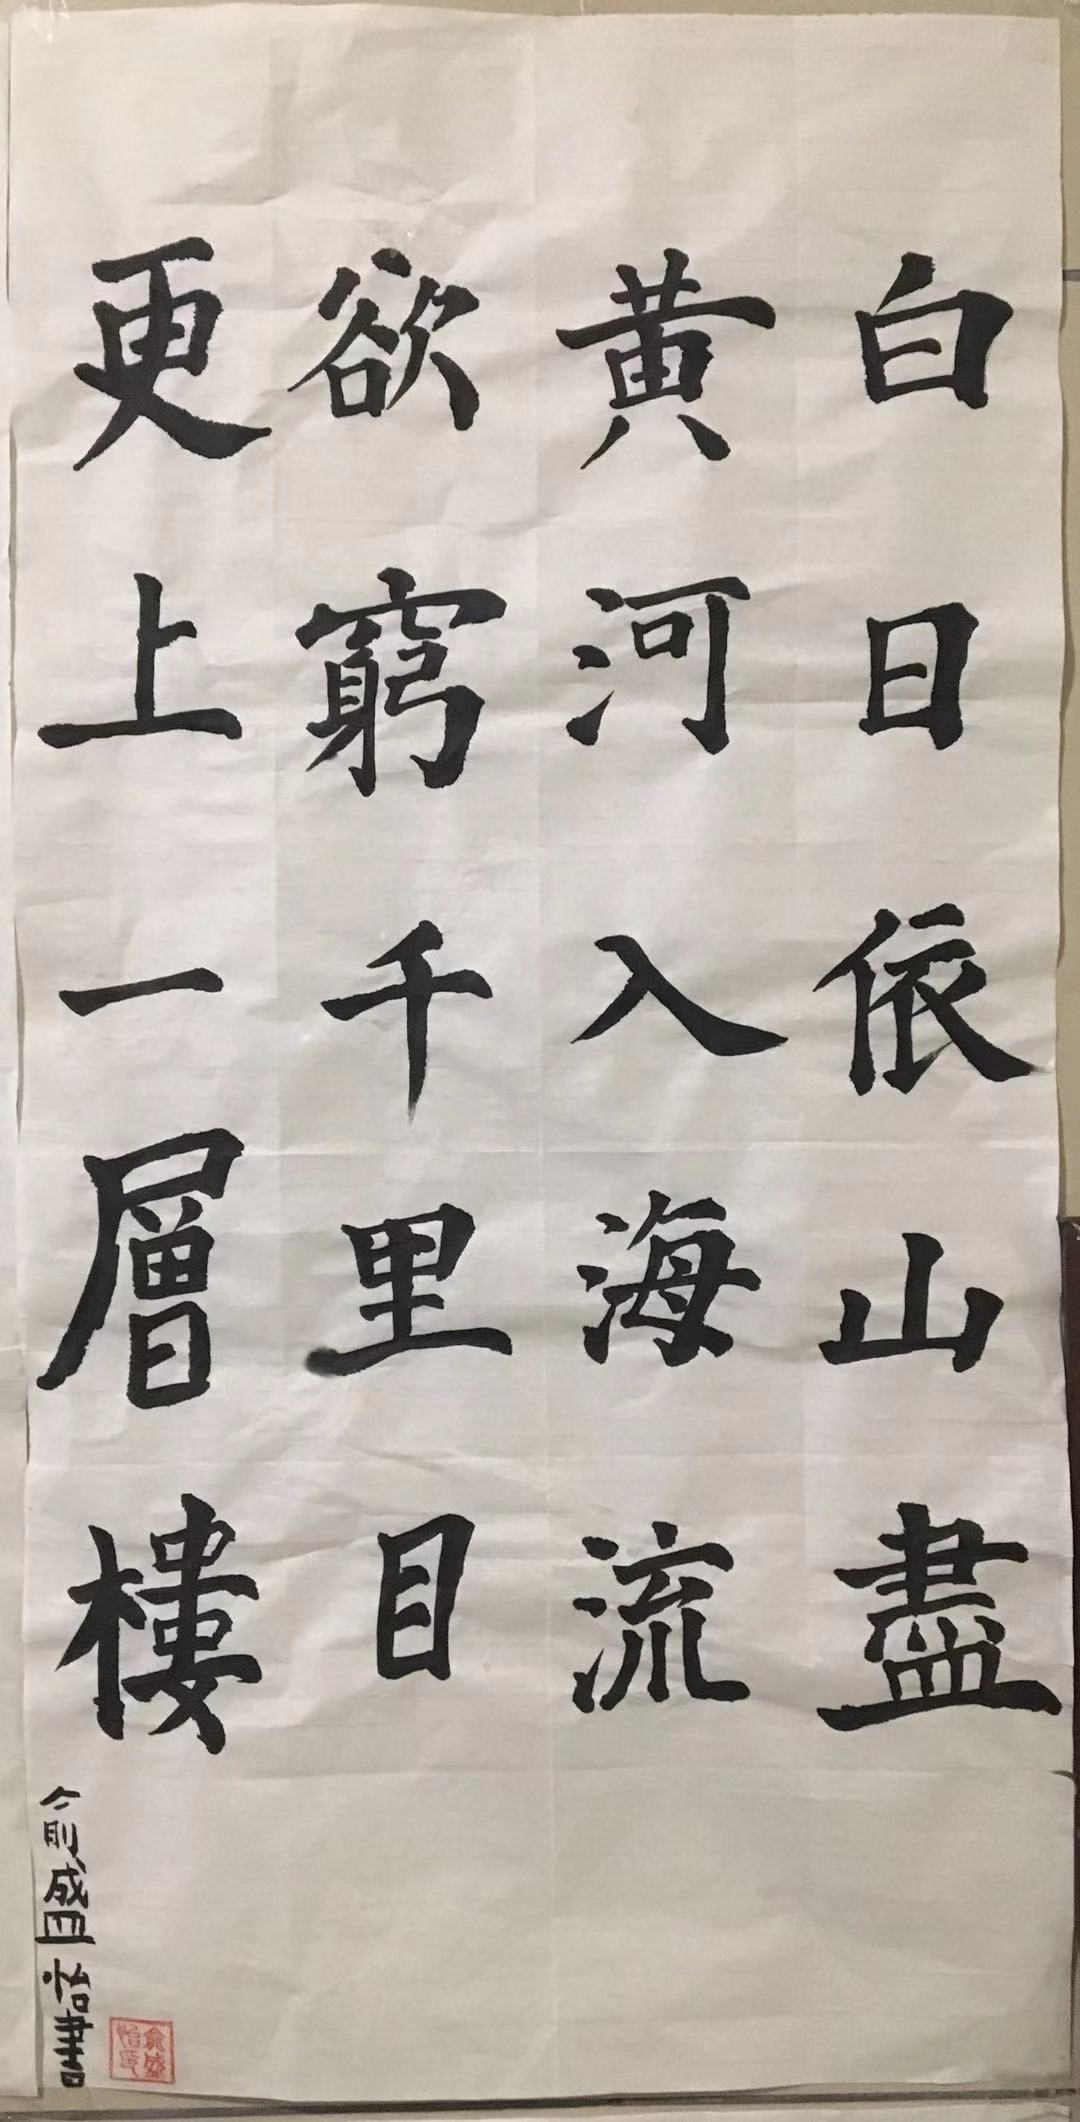 白日依山盡
黃河入海流
欲窮千里目
更上一層樓
俞盛怡書
俞盛怡印